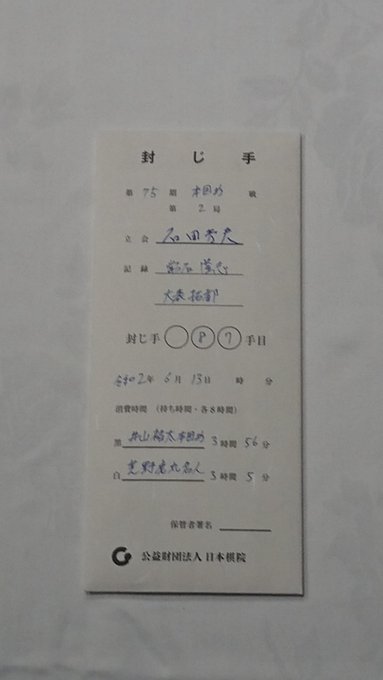 封じ手
第 75 期 本因坊 戦
第 2 局
立会 石田芳夫
記録
大表拓都
封じ手 8 7 手目
令和2年 6月 13日 時 分
消費時間 (持ち時間・各8時間)
黒 井山裕太本因坊 3時間 56分
白 芝野虎丸名人 3時間 5分
保管者署名
公益財団法人 日本棋院